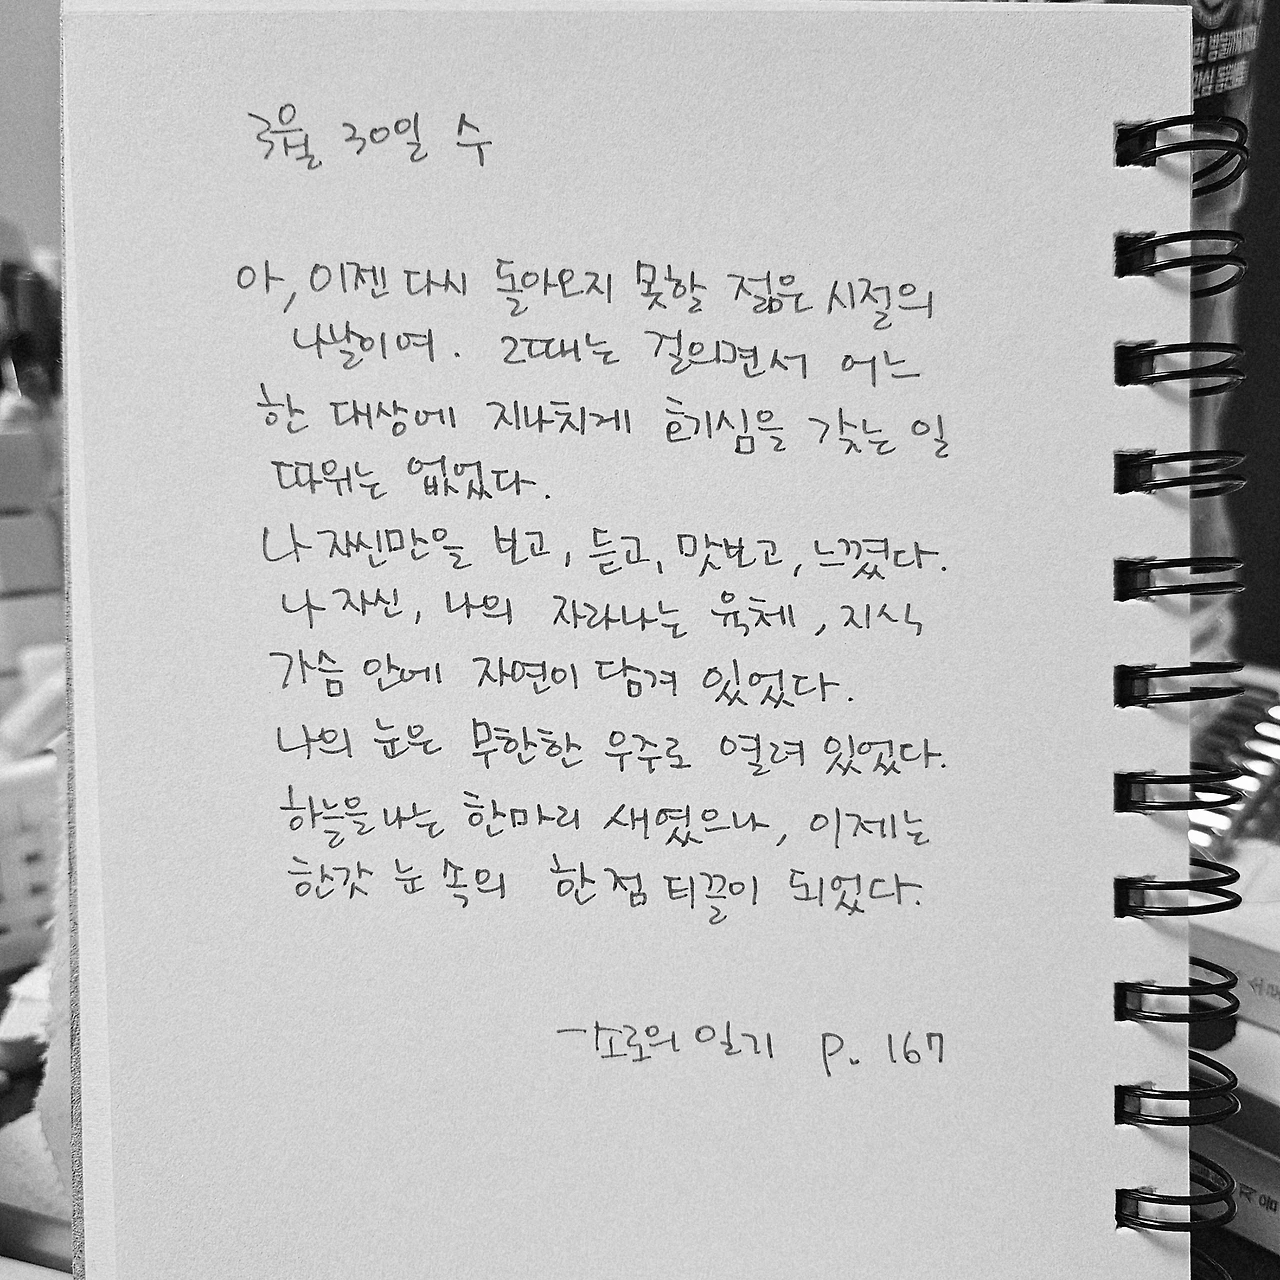 3월 30일 수
아, 이젠 다시 돌아오지 못할 젊은 시절의
나날이여. 그때는 걸으면서 어느
한 대상에 지나치게 호기심을 갖는 일
따위는 없었다.
나 자신만을 보고, 듣고, 맛보고, 느꼈다.
나 자신, 나의 자라나는 육체, 지식
가슴 안에 자연이 담겨 있었다.
나의 눈은 무한한 우주로 열려 있었다.
하늘을 나는 한마리 새였으나, 이제는
한갓 눈 속의 한 점 티끌이 되었다.
- 소로의 일기 p. 167